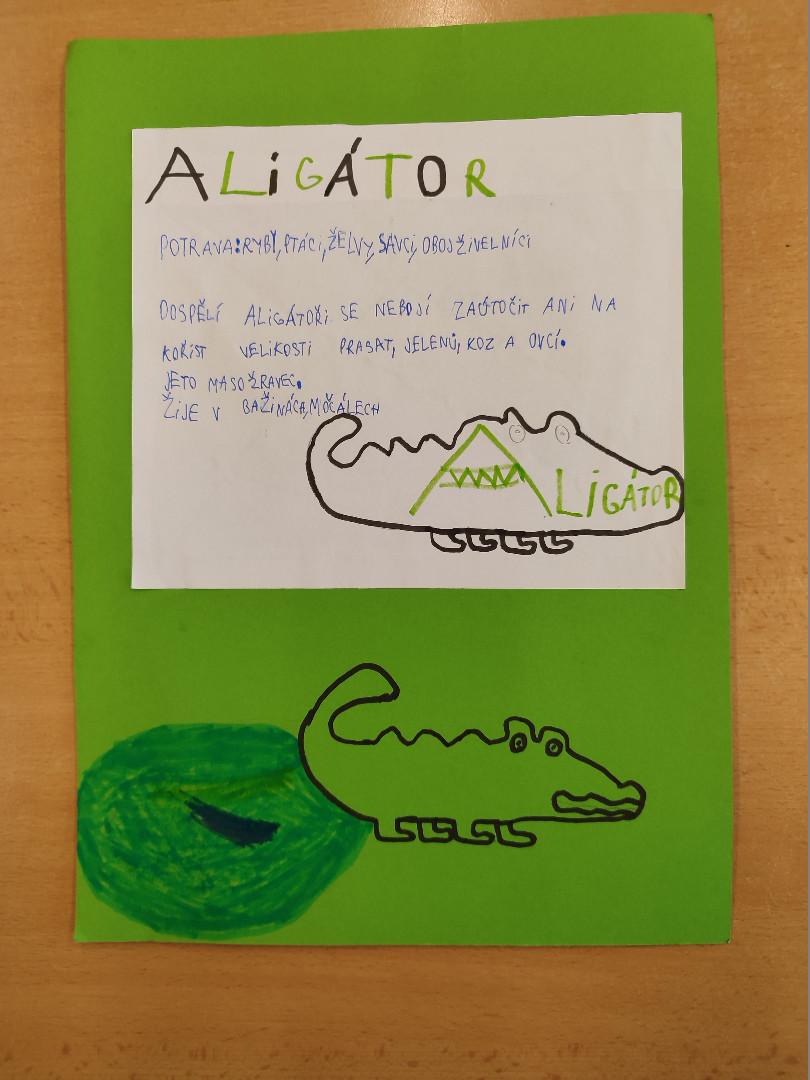 ALiGÁTOR
POTRAVA:RYBY,PTÁCi,ŽELVY,SAVCi,OBOJŽiVELNÍCi
DOSPĚLÍ ALiGÁTOŘi SE NEBOJÍ ZAÚTOČiT ANi NA
KOŘiST VELiKOSTi PRASAT, JELENŮ, KOZ A OVCÍ.
JETO MASOŽRAVEC.
ŽiJE V BAŽiNÁCH,MOČÁLECH
ALiGÁTOR